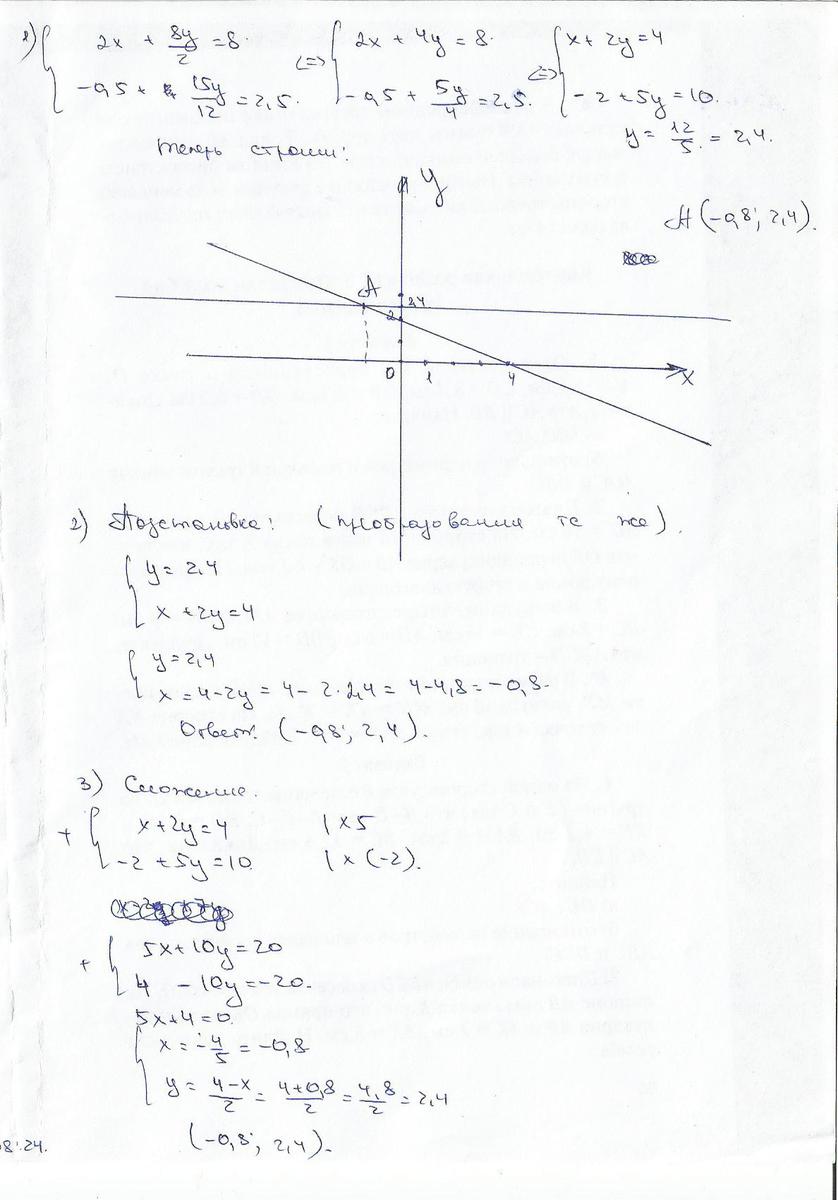 1) { 2x + 8y/2 = 8 <=> { 2x + 4y = 8 <=> { x + 2y = 4
-0,5 + 15y/12 = 2,5. -0,5 + 5y/4 = 2,5. -2 + 5y = 10.
y = 12/5 = 2,4.
Теперь строим:
y
A(-0,8; 2,4).
A
2,4
2
0 1 4 x
2) Подстановка: (преобразования те же).
{ y = 2,4
x + 2y = 4
{ y = 2,4
x = 4-2y = 4 - 2·2,4 = 4-4,8 = -0,8.
Ответ: (-0,8; 2,4).
3) Сложение.
+ { x+2y = 4 | x 5
-2 + 5y = 10 | x (-2).
+ { 5x+10y = 20
4 - 10y = -20.
5x+4 = 0.
{ x = -4/5 = -0,8
y = 4-x/2 = 4+0,8/2 = 4,8/2 = 2,4
(-0,8; 2,4).